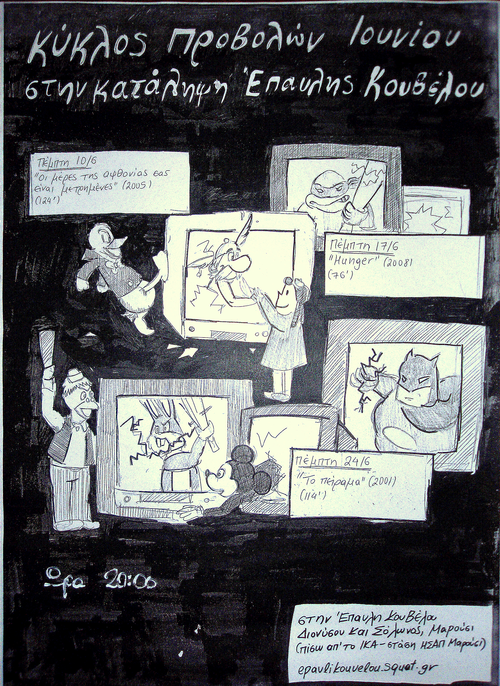 Κύκλος Προβολών Ιουνίου
στην κατάληψη Έπαυλης Κουβέλου
Πέμπτη 10/6
"Οι μέρες της αφθονίας σας
είναι μετρημένες" (2005)
(124')
Πέμπτη 17/6
"Hunger" (2008)
(76')
Πέμπτη 24/6
"Το πείραμα" (2001)
(114')
Ώρα 20:00
στην Έπαυλη Κουβέλου
Διονύσου και Σόλωνος, Μαρούσι
(πίσω απ' το ΙΚΑ-στάση ΗΣΑΠ Μαρούσι)
epavlikouvelou.squat.gr